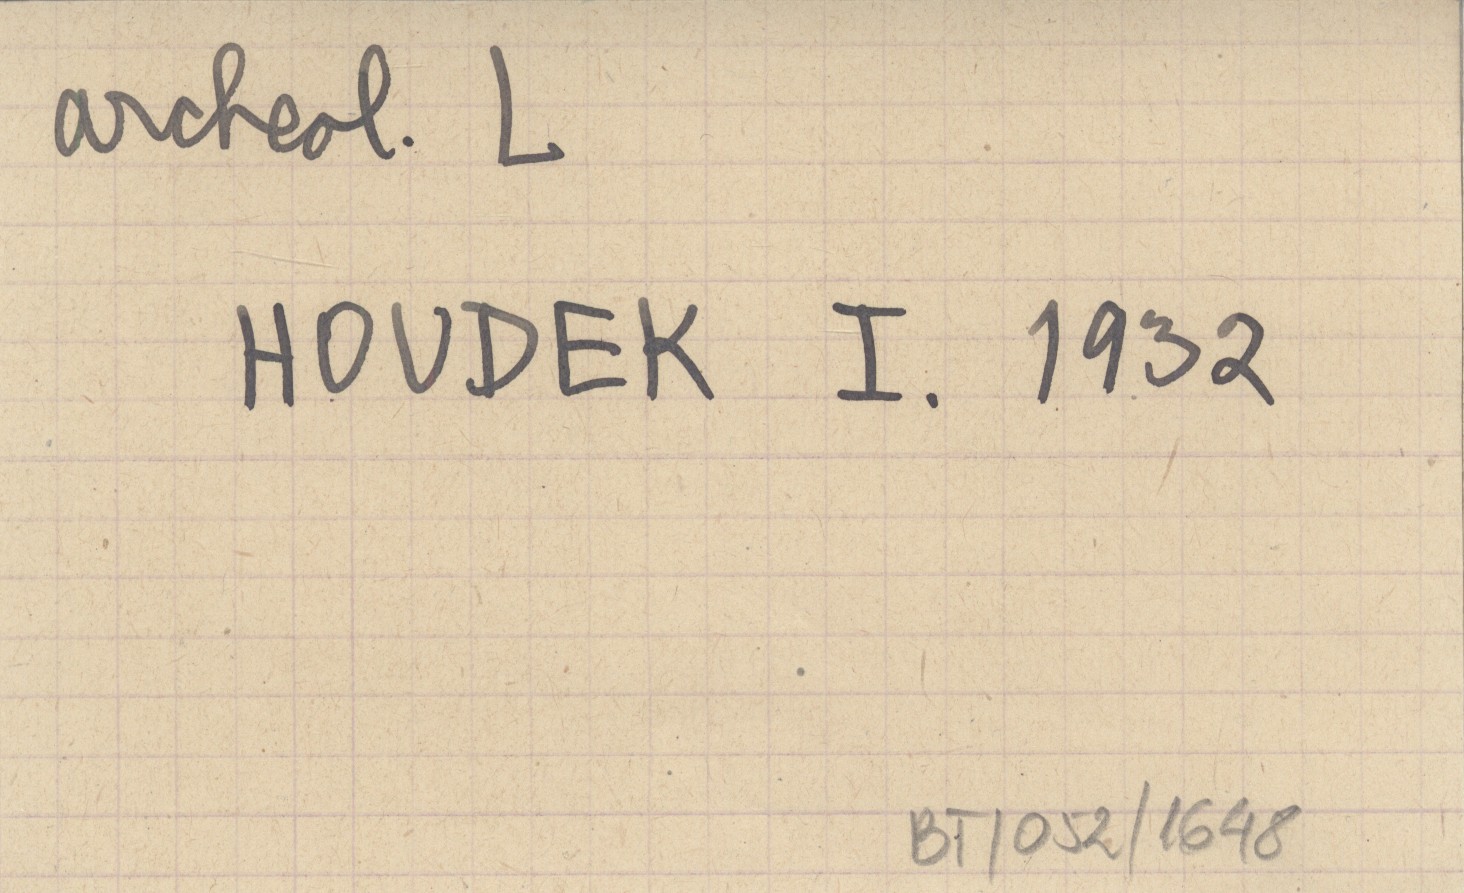 archeol. L
HOUDEK I. 1932
BT/052/1648